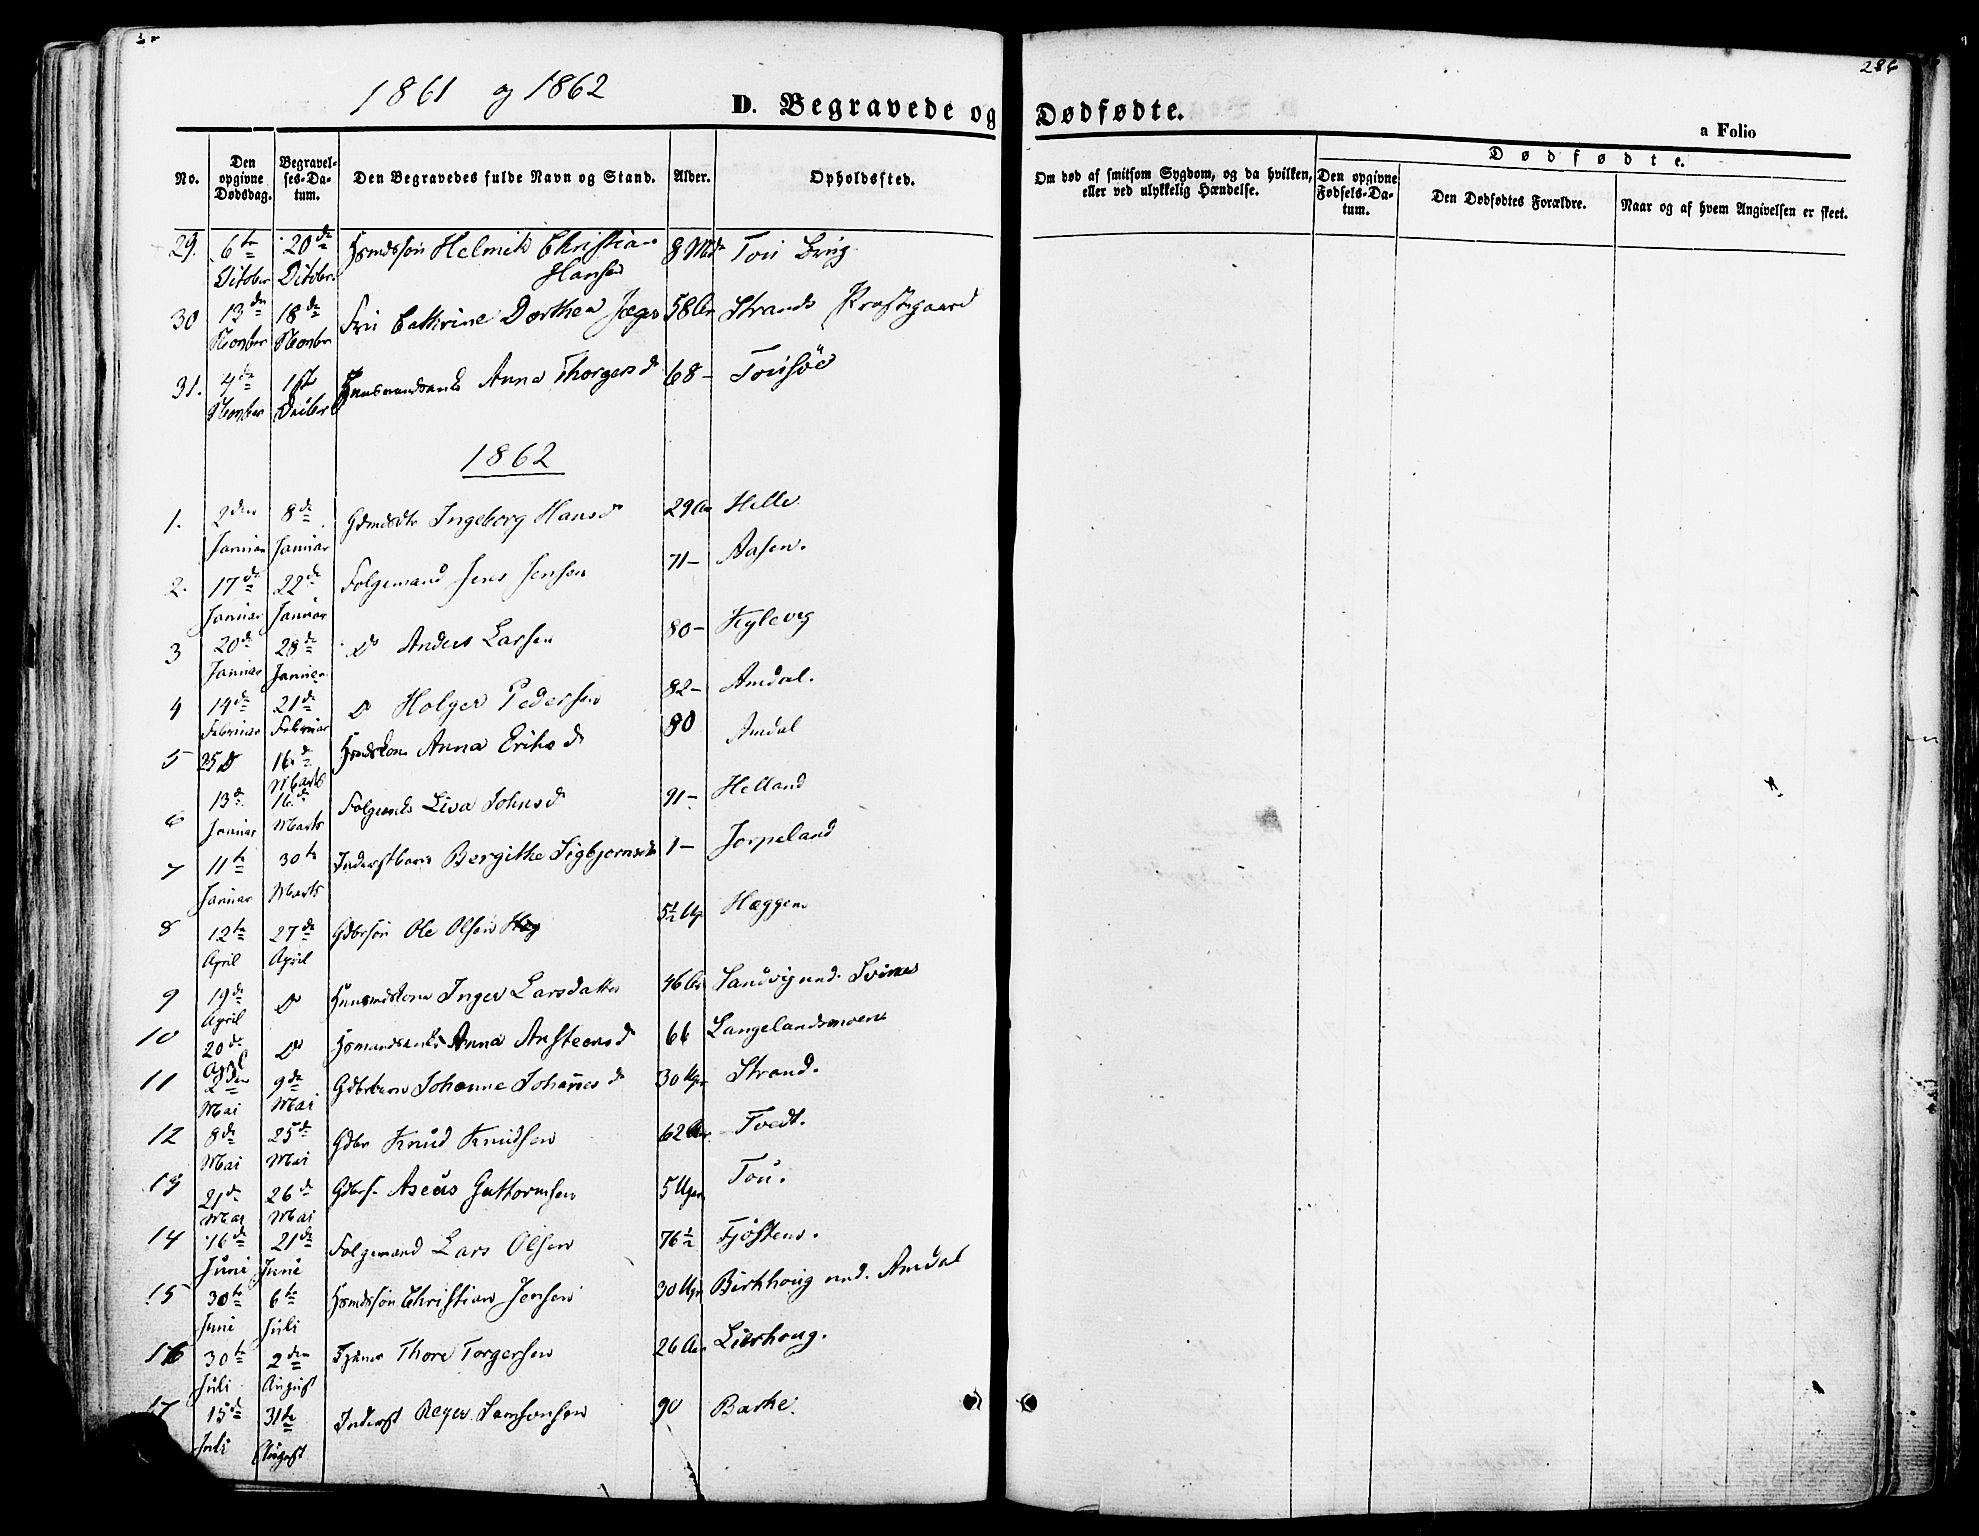 286
1861 og 1862
D. Begravede og Dødfødte.
a Folio
No.
Den opgivne Dødsdag.
Begravelses-Datum.
Den Begravedes fulde Navn og Stand.
Alder.
Opholdssted.
Om død af smitsom Sygdom, og da hvilken, eller ved ulykkelig Hændelse.
Dødfødte.
Den opgivne Fødsels-Datum.
Den Dødfødtes Forældre.
Naar og af hvem Angivelsen er skeet.
29. 6te October 20de October Hsmdssøn Helmik Christian Hansen 8 Mdr Tou
30 13de Novbr 18de Novbr Fru Cathrine Dorthea Jæger 58 Aar Strands Præstegaard
31. 4de Novbr 1ste Decbr Huusmandsenke Anna Thorgersd 68 - Tousøe
1862
1. 2den Januar 8de Januar Gdmdsdtr Ingeborg Hansd 29 Aar Helle
2. 17de Januar 22de Januar Folgemand Jens Jensen 71 - Aasen.
3 20de Januar 28de Januar Do Anders Larsen 80 - Kyleveg
4 14de Februar 21de Februar Do Holger Pedersen 82 - Amdal.
5 25 Do 16de Marts Hsmdskone Anna Eriksd 80 Amdal
6 13de Januar 16de Marts Folgeenke Siva Johnsd 91 - Helland
7 11te Januar 30te Marts Inderstbarn Bergithe Sigbjørnsd 1 - Jørpeland
8 12te April 27de April Gdbrsøn Ole Olsen 5½ Ugr Hæggen
9 19de April Do Huusmdskone Inger Larsdatter 46 Aar Sandvig und. Svines
10 20de April Do Hsmandsenke Anna Austeensd 66 Langelandsmoen
11 2den Mai 9de Mai Gdbrbarn Johanne Johannesd 30 Ugr Strand.
12 8de Mai 25de Mai Gdbr Knud Knudsen 62 Aar Tvedt.
13 21de Mai 26de Mai Gdbrs. Aseus Guttormsen 5 Uger Tou.
14 16de Juni 21de Juni Folgemand Lars Olsen 76½ Fjøsten.
15 30te Juni 6te Juli Hsmdssøn Christian Jensen 30 Ugr Birkhoug und. Amdal
16 30te Juli 2den August Tjener Thore Torgersen 26 Aar Lierhoug.
17 15de Juli 31te August Inderst Reyer Samsonsen 90 Barke.